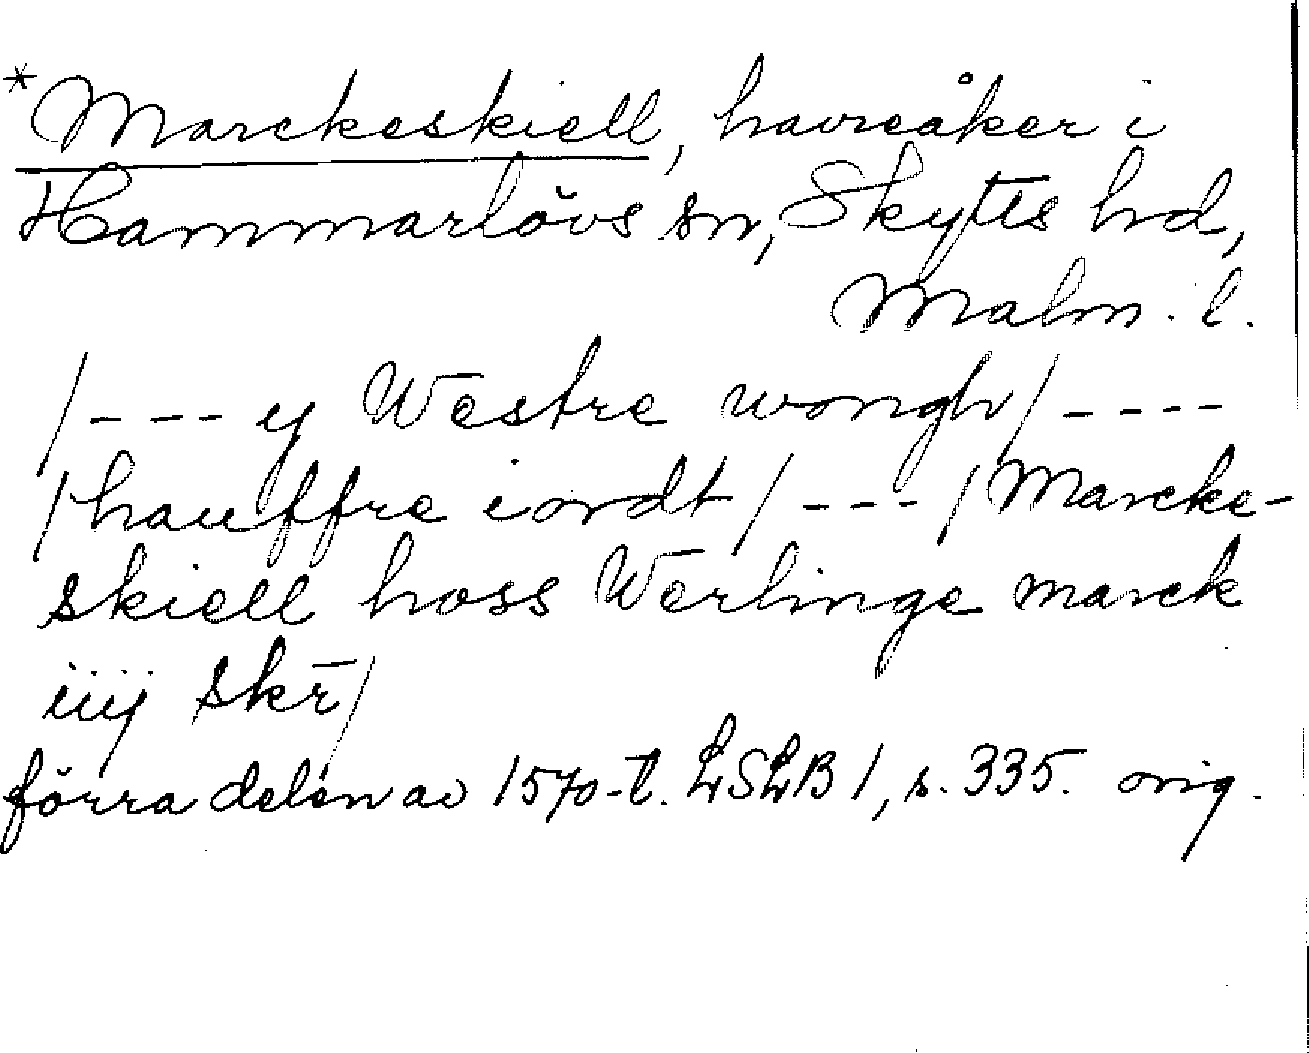 *Marckeskiell, havreåker i
Hammarlövs sn, Skytts hd,
Malm. l.
/---- y Westre wongh/----
/hauffre iordt/---/Marcke-
skiell hoss Werlinge marck
iiij skr̄/
förra delen av 1570-t. LSLB 1, s. 335. orig.